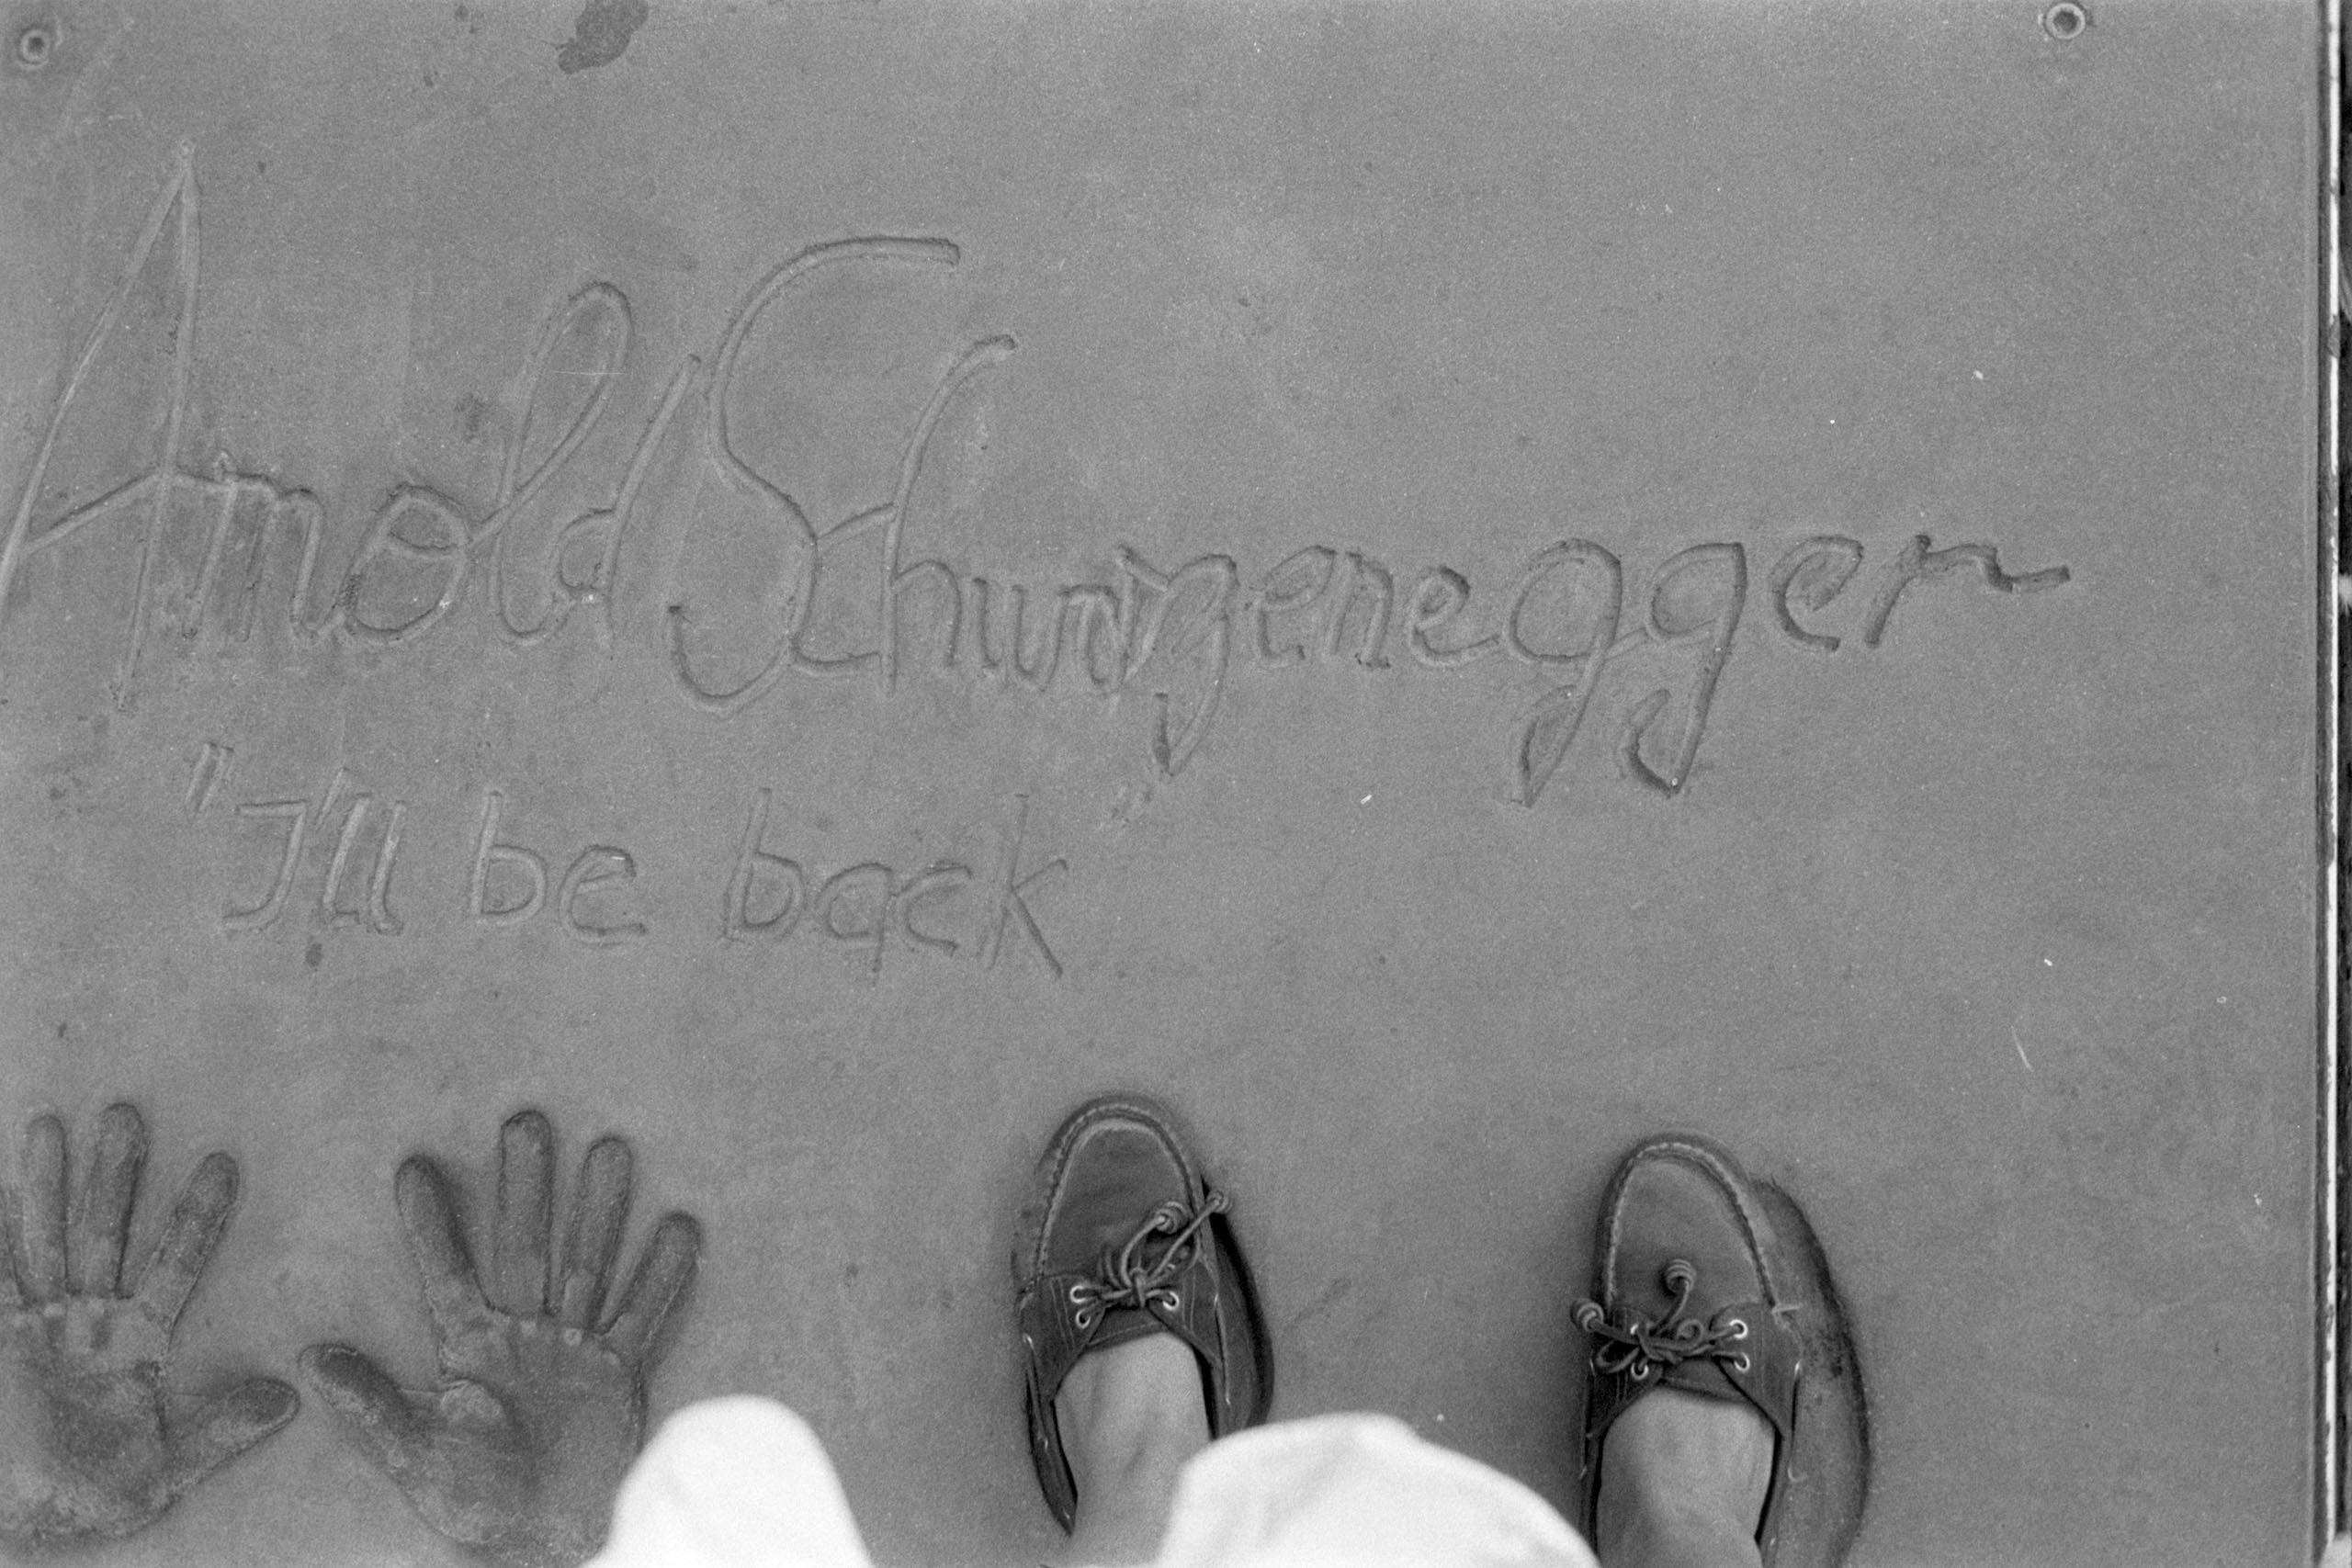 Arnold Schwarzenegger
"I'll be back"